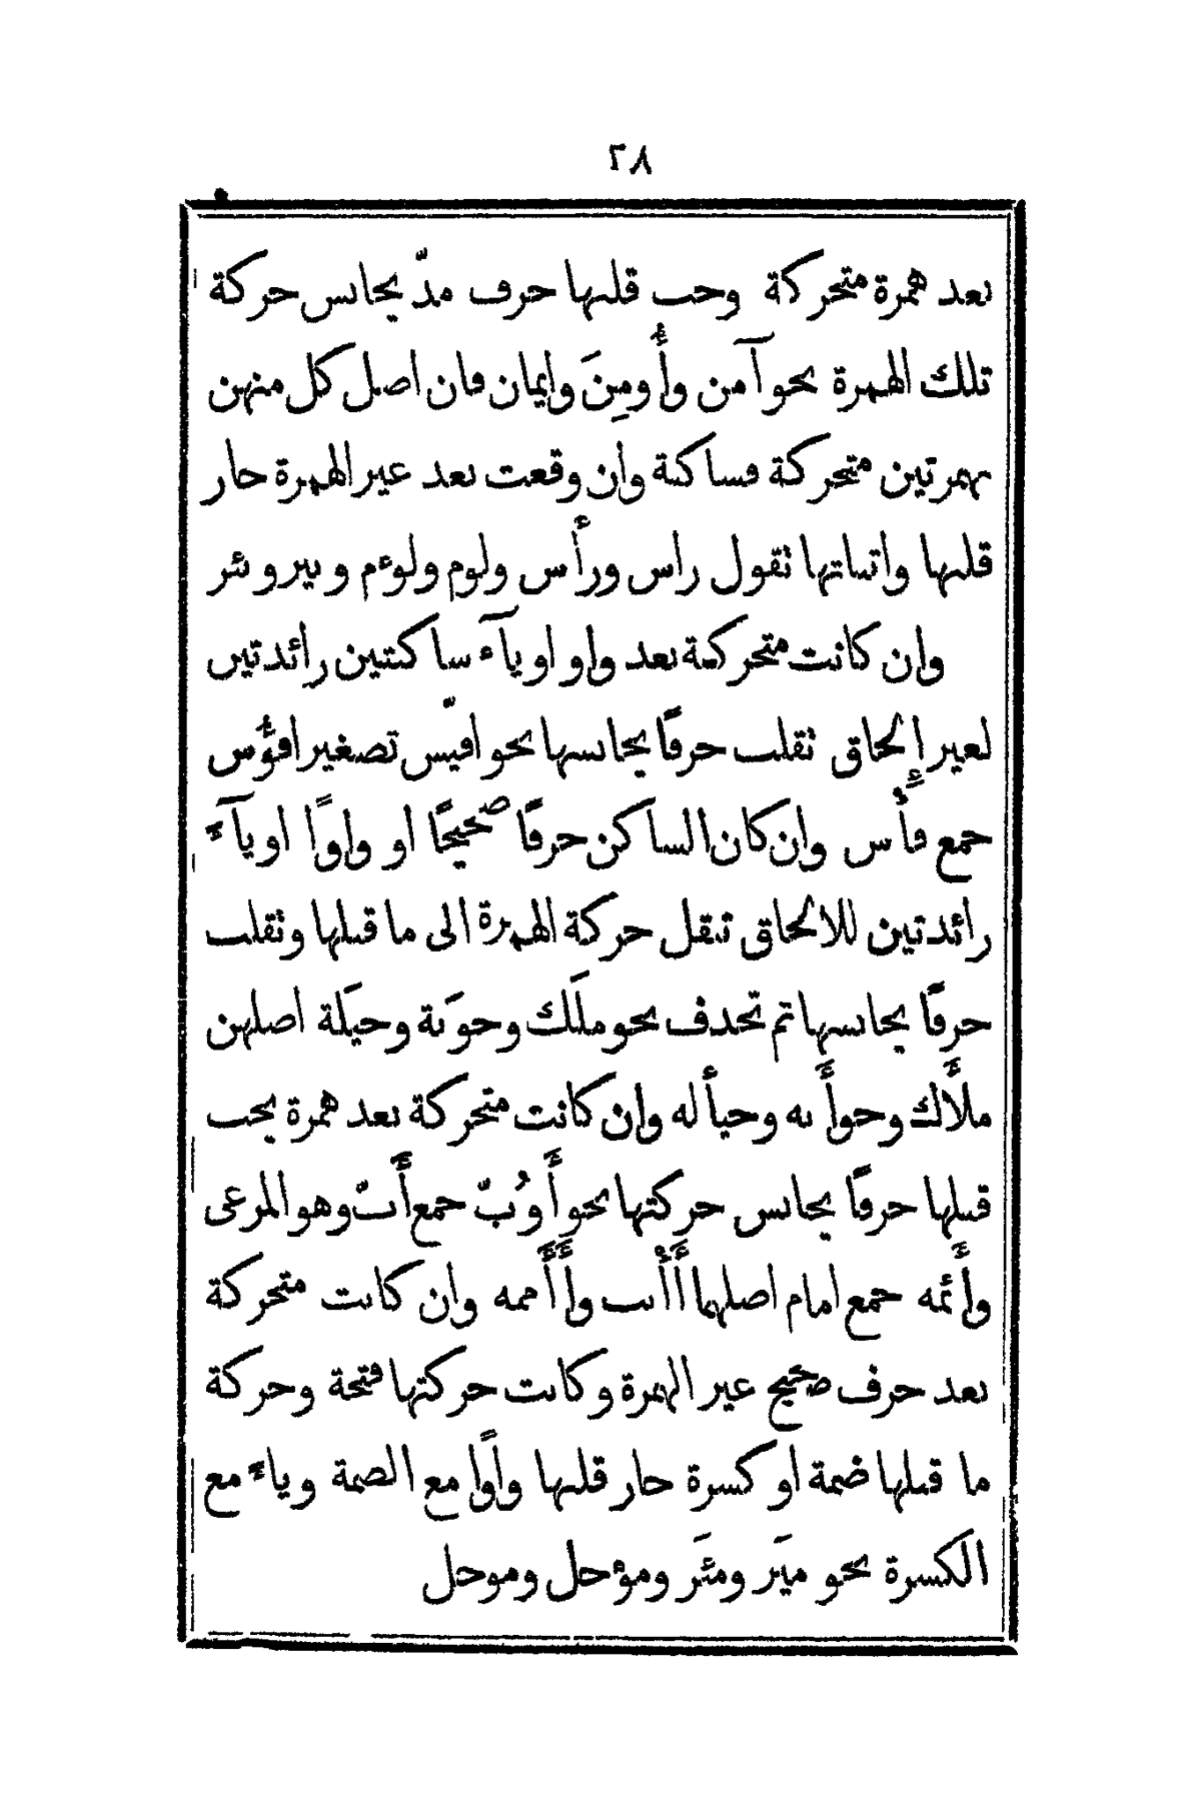 ٢٨
بعد همزة متحركة وجب قلبها حرف مدّ يجانس حركة
تلك الهمزة نحو آمن وأُومِنَ وإيمان فان اصل كل منهن
بهمزتين متحركة فساكنة وان وقعت بعد غير الهمزة جاز
قلبها واثباتها تقول راس ورأس ولوم ولوءم وبير وبئر
وان كانت متحركة بعد واو او يآء ساكنتين زائدتين
لغير إلحاق تقلب حرفًا يجانسها نحو افيّس تصغير افؤُس
جمع فأس وان كان الساكن حرفًا صحيحًا او واوًا او يآءً
زائدتين للالحاق تنقل حركة الهمزة الى ما قبلها وتقلب
حرفًا يجانسها ثم تحذف نحو ملَك وحوَبة وحيَلة اصلهن
ملأَك وحوأَبه وحيأله وان كانت متحركة بعد همزة يجب
قبلها حرفًا يجانس حركتها نحو أَوُبّ جمع أَبّ وهو المرعى
وأَئمه جمع امام اصلهما أَأْبب وأَأَممه وان كانت متحركة
بعد حرف صحيح غير الهمزة وكانت حركتها فتحة وحركة
ما قبلها ضمة او كسرة جاز قلبها واوًا مع الضمة وياءً مع
الكسرة نحو ميَر ومئَر ومؤجل وموجل